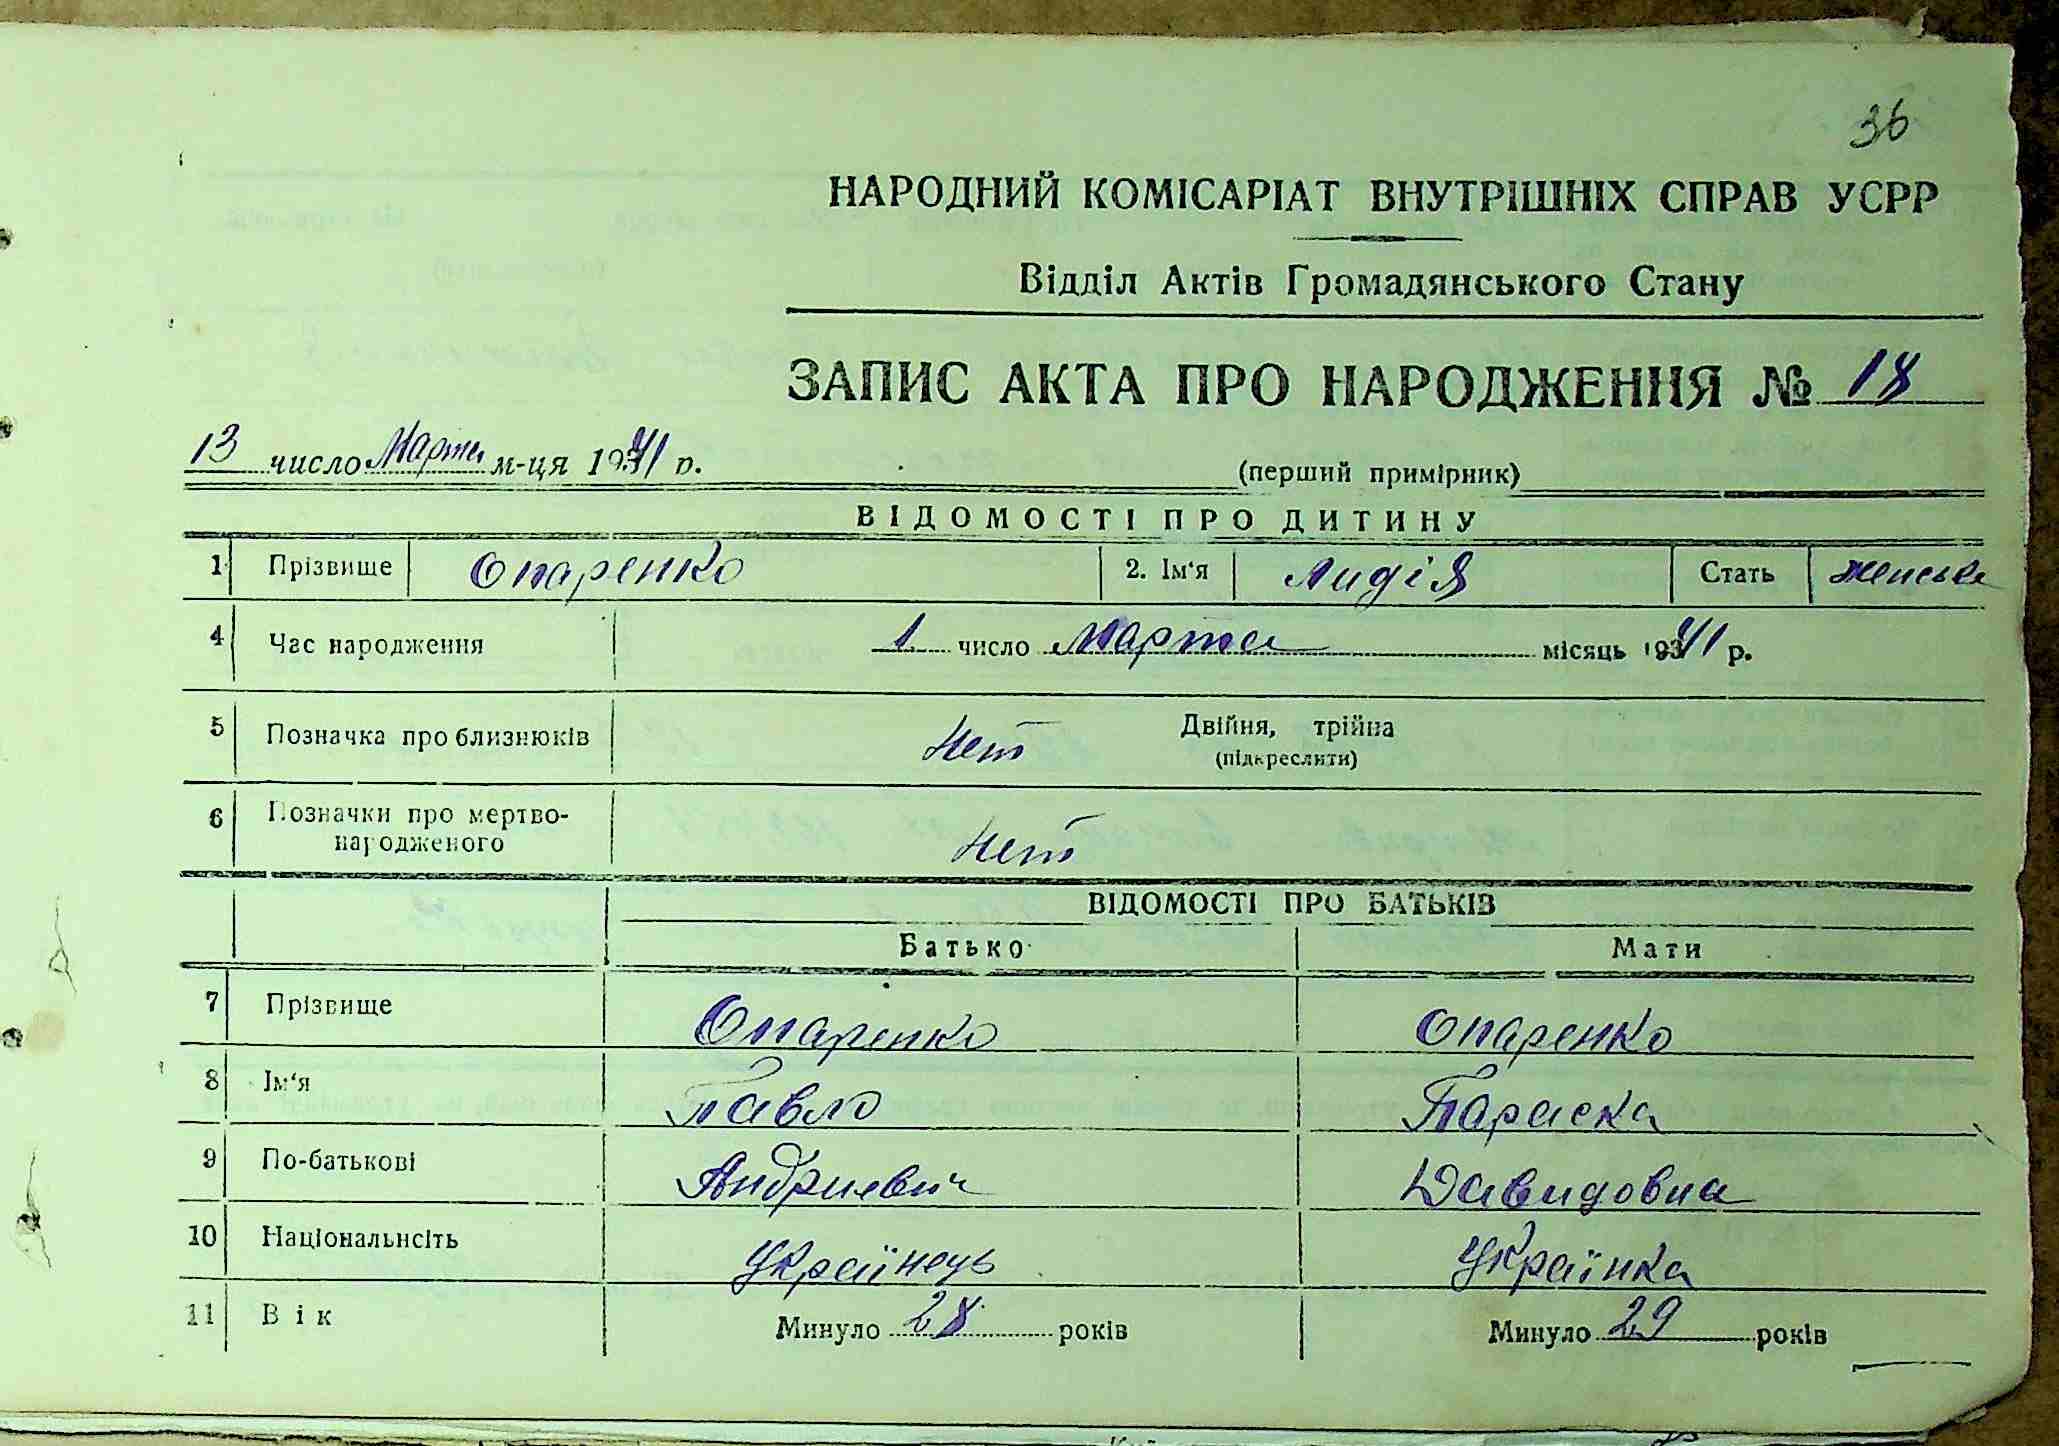 36
НАРОДНИЙ КОМІСАРІАТ ВНУТРІШНІХ СПРАВ УСРР
Відділ Актів Громадянського Стану
ЗАПИС АКТА ПРО НАРОДЖЕННЯ № 18
13 число Марта м-ця 1941 р.
(перший примірник)
ВІДОМОСТІ ПРО ДИТИНУ
1 Прізвище Опаренко 2. Ім'я Лидія Стать женська
4 Час народження 1 число Марта місяць 1941 р.
5 Позначка про близнюків Нет Двійня, трійна
(підкреслити)
6 Позначки про мертво-
народженого Нет
ВІДОМОСТІ ПРО БАТЬКІВ
Батько Мати
7 Прізвище Опаренко Опаренко
8 Ім'я Павло Параска
9 По-батькові Андриевич Давидовна
10 Національнсіть Українець Українка
11 Вік Минуло 28 років Минуло 29 років